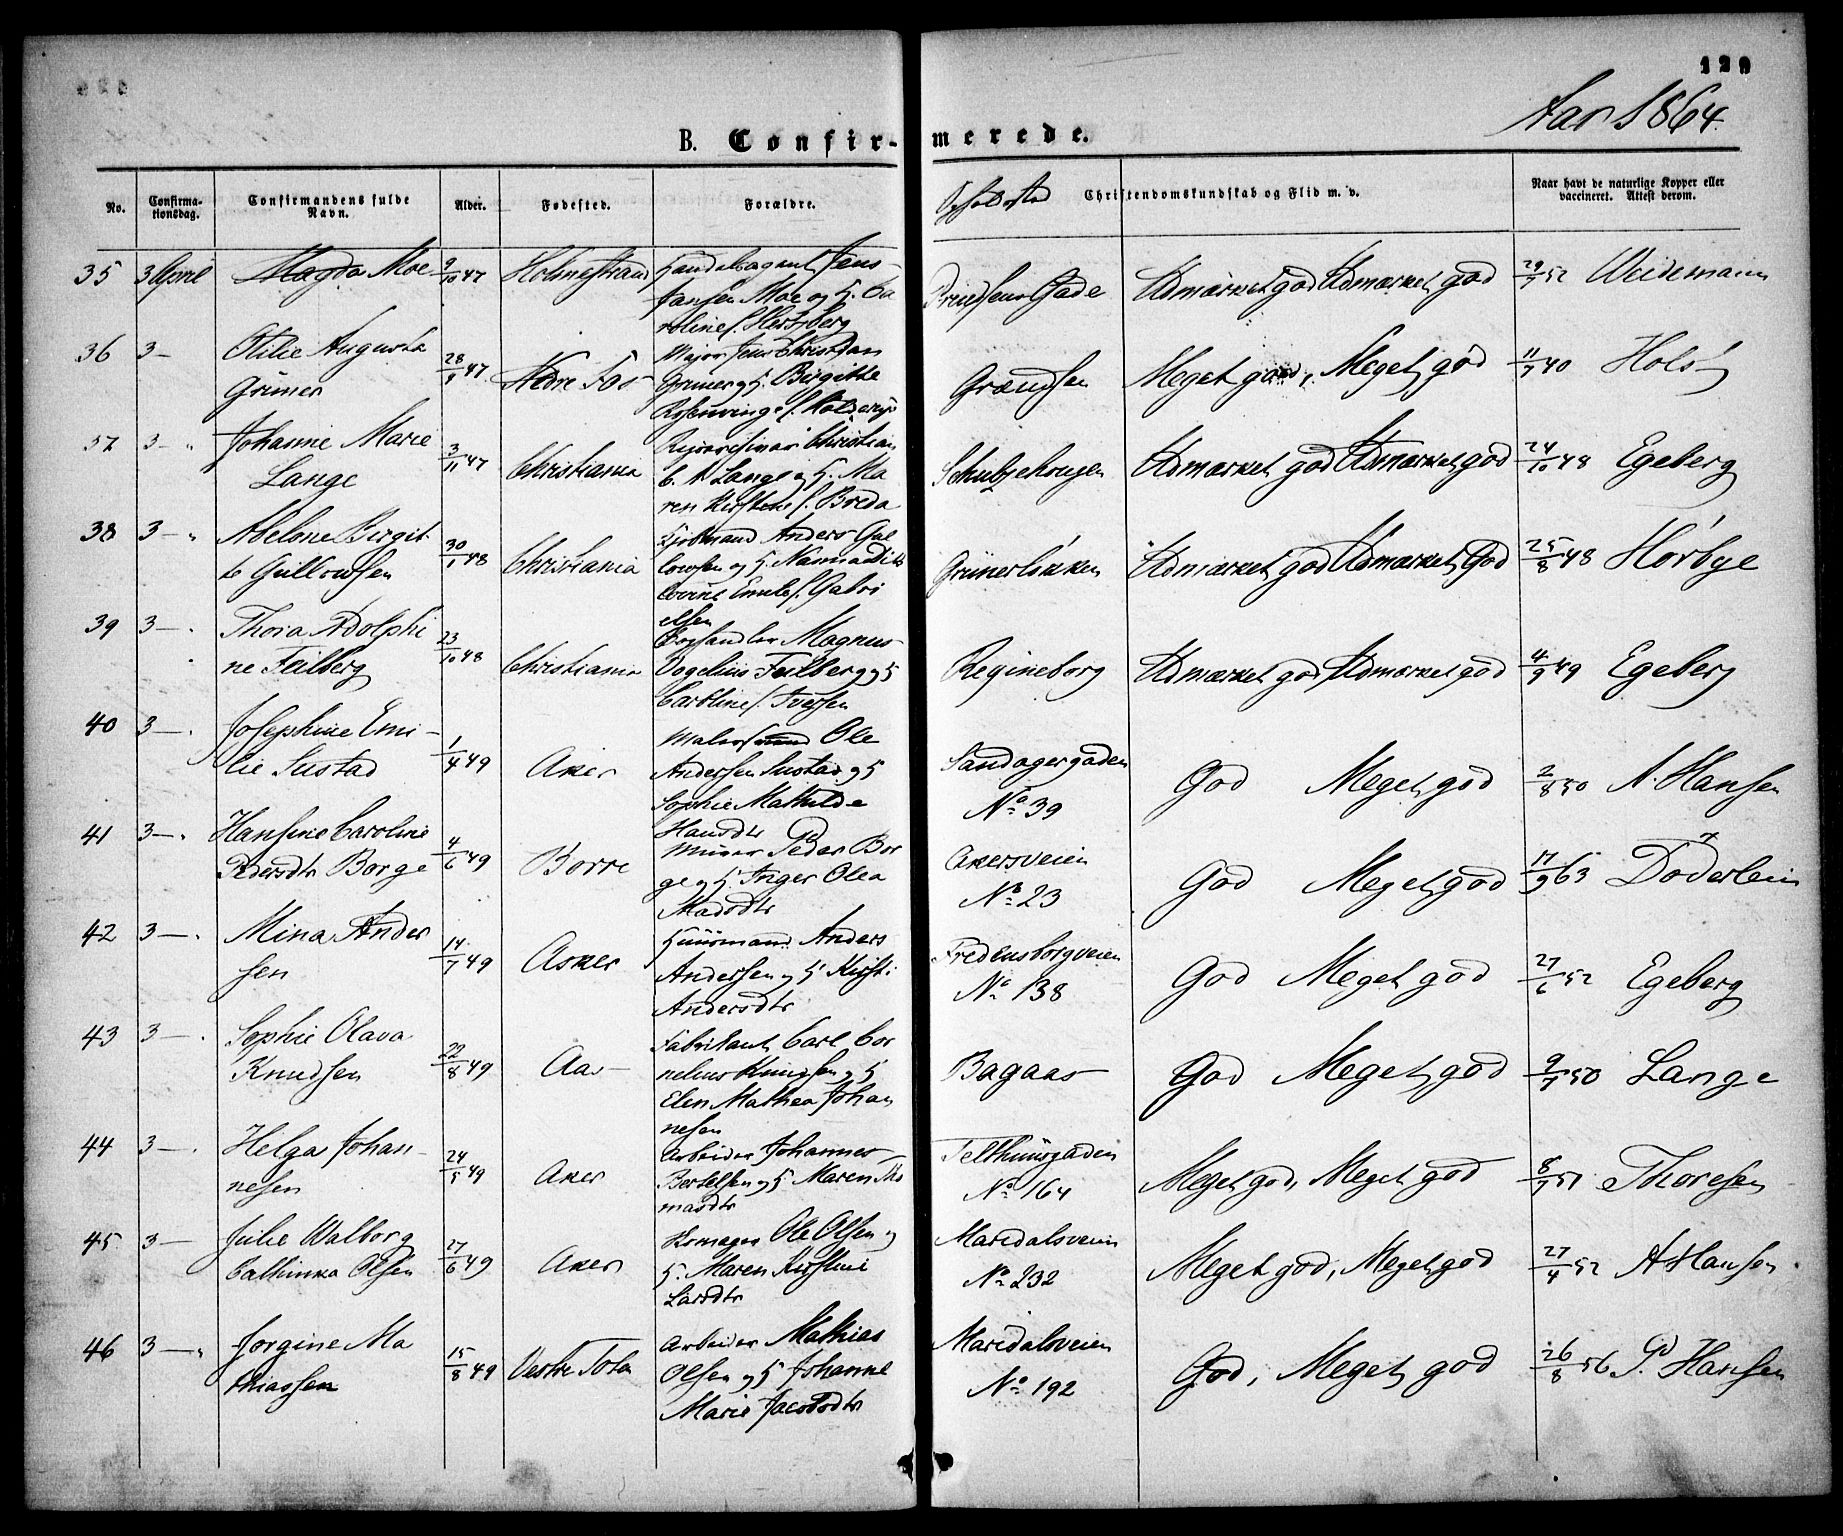 129
Aar 1864.
B. Confir-merede.
No. Confirma-tionsdag. Confirmandens fulde Navn. Alder. Fødested. Forældre. Opholdssted Christendomskundskab og Flid m. v. Naar havt de naturlige Kopper eller vaccineret. Attest derom.
35 3 April Magda Moe 9/10 47 Holmestrand Handelsagent Jens
Jansen Moe og H. Ca
roline f. Hertzberg
Prindsens Gade Udmærket god Udmærket god 29/7 52 Weidemann
36 3 — Otilie Augusta
Grüner
28/9 47 Nedre Fos Major Jens Christian
Grüner og H. Birgitte
Rosenvinge f.
Grændsen Meget god, Meget god 11/7 40 Holst
37 3 — " Johanne Marie
Lange
3/11 47 Christiania Christian
C. A Lange og H. Ma
ren Kirstine f. Breda
Udmærket god Udmærket god 24/10 48 Egeberg
38 3 — " Abelone Birgit
te Gullowsen
30/1 48 Christiania Anders Gul
lowsen og H.
f. Gabri
elsen
Grünerløkken Udmærket god Udmærket God 25/8 48 Hørbye
39 3 — . Thora Adolphi
ne Feilberg
23/10 48 Christiania Boghandler Magnus
Vogelius Feilberg og H
Caroline f. Iversen
Regineborg Udmærket god, Udmærket god 4/9 49 Egeberg
40 3 — . Josephine Emi-
lie Sustad
1/4 49 Aker Malersvend Ole
Andersen Sustad og H
Sophie Mathilde
Hansdtr
Sandagergaden
No 39
God Meget god 2/8 50 A. Hansen
41 3 — . Hansine Caroline
Pedersdtr Borge
4/6 49 Borre Murer Peder Bor
ge og H. Inger Olea
Madsdtr
Akersveien
No 23
God Meget god 17/9 63 Döderlein
42 3 — . Mina Ander
sen
14/7 49 Asker Huusmand Anders
Andersen og H Kirsti
Andersdtr
Fredensborgveien
No 138
God Meget god 27/6 52 Egeberg
43 3 — . Sophie Olava
Knudsen
22/8 49 Aas Fabrikant Carl Cor
nelius Knudsen og H
Elen Mathea Johan
nesen
Bagaas God Meget god 9/7 50 Lange
44 3 — . Helga Johan-
nesen
24/5 49 Aker Arbeider Johannes
Bertelsen og H Maren Tho
masdtr
Telthuusgaden
No 164
Meget god, Meget god 8/7 51 Thoresen
45 3 — Julie Walborg
Cathinka Olsen
27/6 49 Aker Skomager Ole Olsen og
H. Maren Kirstine
Larsdtr
Maridalsveien
No 232
Meget god, Meget god 27/4 52 A Hansen.
46 3 — " Jorgine Ma
thiassen
15/8 49 Vestre Toten Arbeider Mathias
Olsen og H Johanne
Marie Jacobsdtr
Maridalsveien
No 192
God, Meget god 26/8 56 P. Hansen